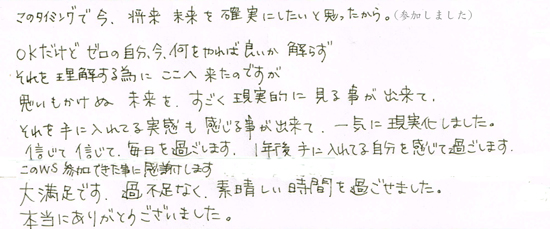 このタイミングで今、将来 未来を確実にしたいと思ったから。(参加しました)
OKだけど ゼロの自分、今、何をやれば良いか 解らず
それを理解する為に ここへ来たのですが
思いもかけぬ 未来を、すごく現実的に見る事が出来て、
それを手に入れてる実感も感じる事が出来て、一気に現実化しました。
信じて 信じて、毎日を過ごします。1年後 手に入れてる自分を感じて過ごします。
このWS 参加できた事に感謝します
大満足です。過不足なく、素晴しい時間を過ごせました。
本当にありがとうございました。